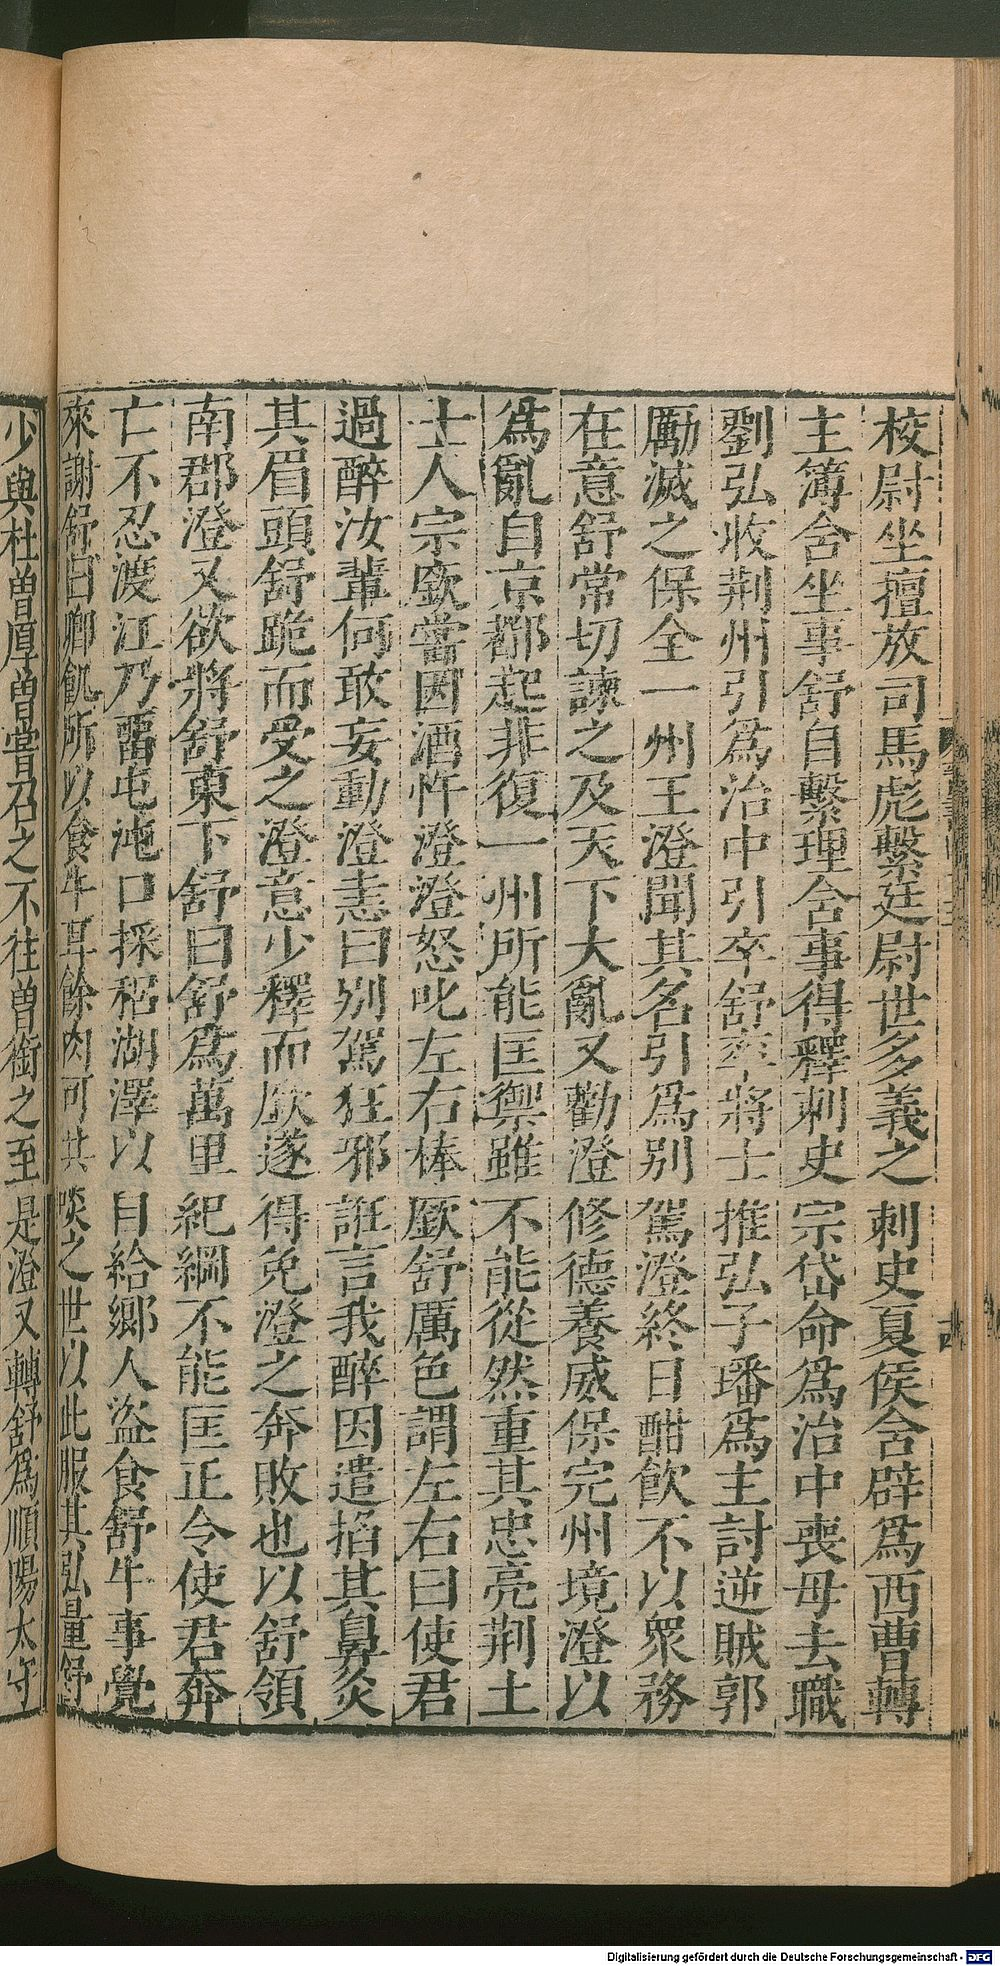 校尉坐擅放司馬彪繫廷尉世多義之刺史夏侯含辟爲西曹轉
主簿含坐事舒自繫理含事得釋刺史宗岱命爲治中喪母去職
劉弘收荆州引爲治中引卒舒率將士推弘子璠爲主討逆賊郭
勵滅之保全一州王澄聞其名引爲别駕澄終日酣飲不以衆務
在意舒常切諫之及天下大亂又勸澄修德養威保完州境澄以
爲亂自京都起非復一州所能匡禦雖不能從然重其忠亮荆土
士人宗廞嘗因酒忤澄澄怒叱左右棒厫舒厲色謂左右曰使君
過醉汝輩何敢妄動澄恚曰别駕狂邪誑言我醉因遣掐其鼻灸
其眉頭舒跪而受之澄意少釋而厫遂得免澄之奔敗也以舒領
南郡澄又欲將舒東下舒曰舒爲萬里紀綱不能匡正令使君奔
亡不忍渡江乃畱屯沌口採稆湖澤以自給鄉人盜食舒牛事覺
來謝舒曰卿飢所以食牛耳餘肉可共啖之世以此服其弘量舒
少與杜曽厚曽嘗召之不往曽銜之至是澄又轉舒爲順陽太守
十四
Digitalisierung gefördert durch die Deutsche Forschungsgemeinschaft - DFG